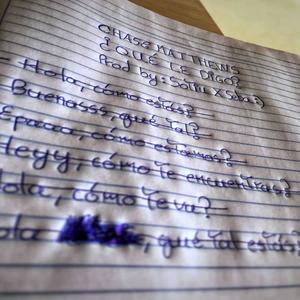 CHASE MATTHEWS
¿QUÉ LE DIGO?
Prod by: Solhe X Seba :)
- Hola, cómo estás?
Buenasss, qué tal?
Epaaa, cómo estamos?
Heyy, cómo te encuentras?
Hola, cómo te va?
Hola, qué tal estás?